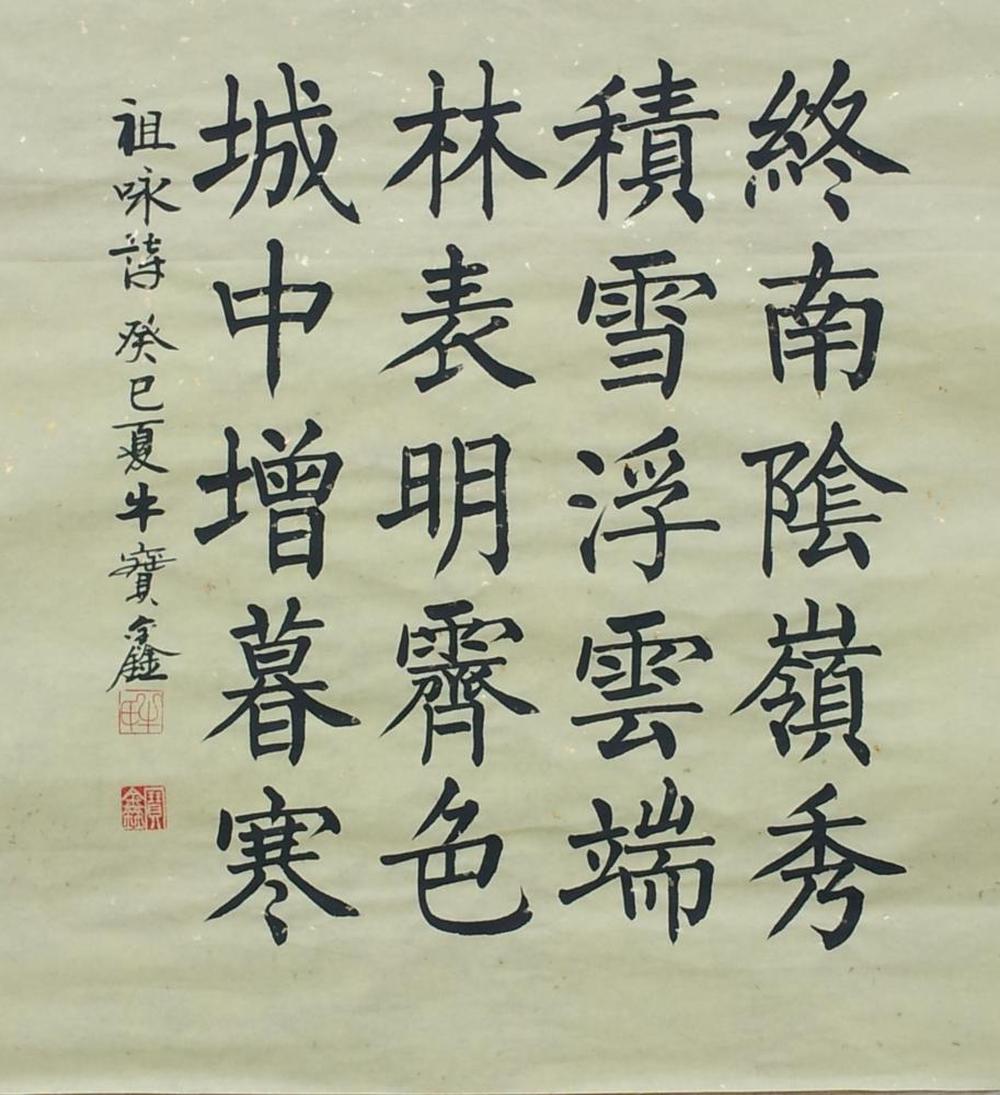 終南陰嶺秀
積雪浮雲端
林表明霽色
城中增暮寒
祖咏詩癸巳夏牛寶鑫
牛
寶鑫